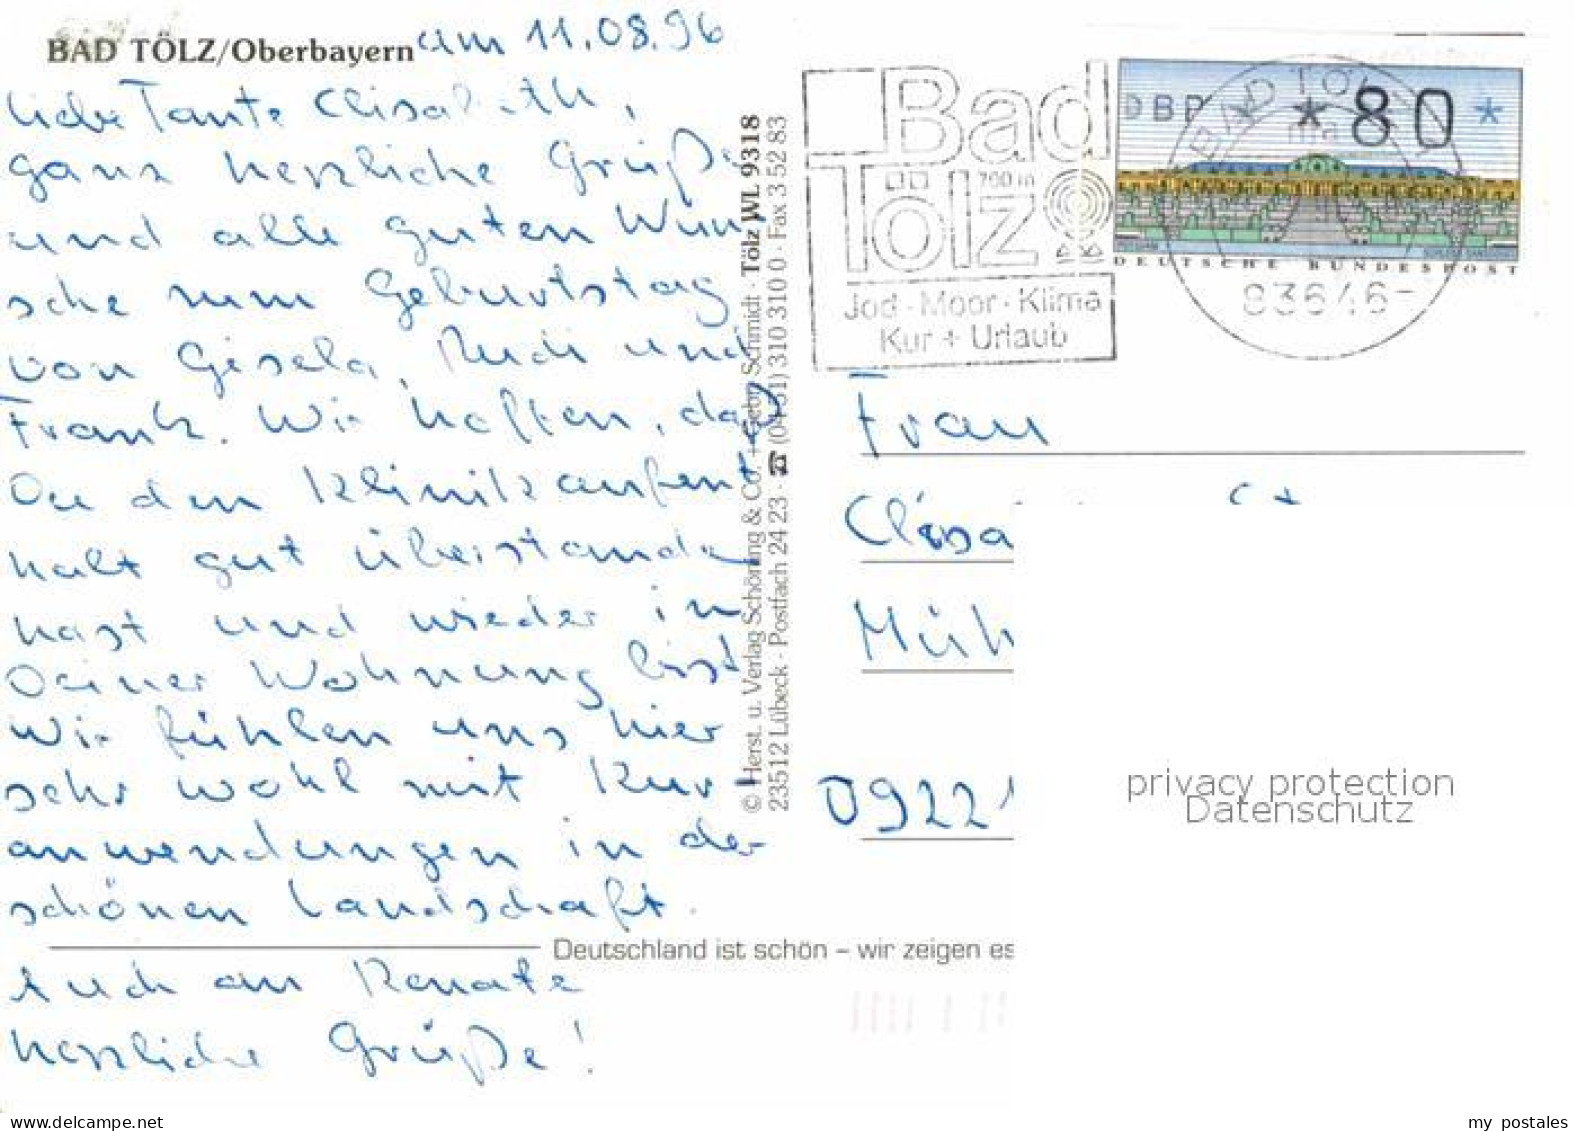 BAD TÖLZ/Oberbayern am 11.08.96
liebe Tante Elisabeth,
ganz herzliche Grüße
und alle guten Wün
sche zum Geburtstag
von Gisela, Rudi und
Frank. Wir hoffen, daß
Du den Klinikaufent
halt gut überstanden
hast und wieder in
Deiner Wohnung bist
Wir fühlen uns hier
sehr wohl mit Kur
anwendungen in der
schönen Landschaft.
Auch an Renate
herzliche Grüße!
© Herst. u. Verlag Schöning & Co. + Gebr. Schmidt · Tölz WL 9318
23512 Lübeck · Postfach 24 23 · ☎ (04 51) 310 310 0 · Fax 3 52 83
Deutschland ist schön – wir zeigen es
Bad
Tölz
700 m
Jod · Moor · Klima
Kur + Urlaub
BAD TÖLZ
83646
DBP 80
DEUTSCHE BUNDESPOST
Frau
Elisa
Müh
09221
privacy protection
Datenschutz
my postales